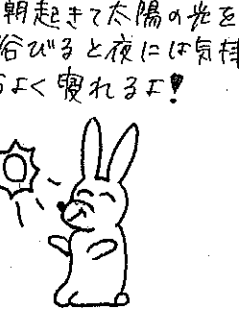 朝起きて太陽の光を
浴びると夜には気持
ちよく寝れるよ!